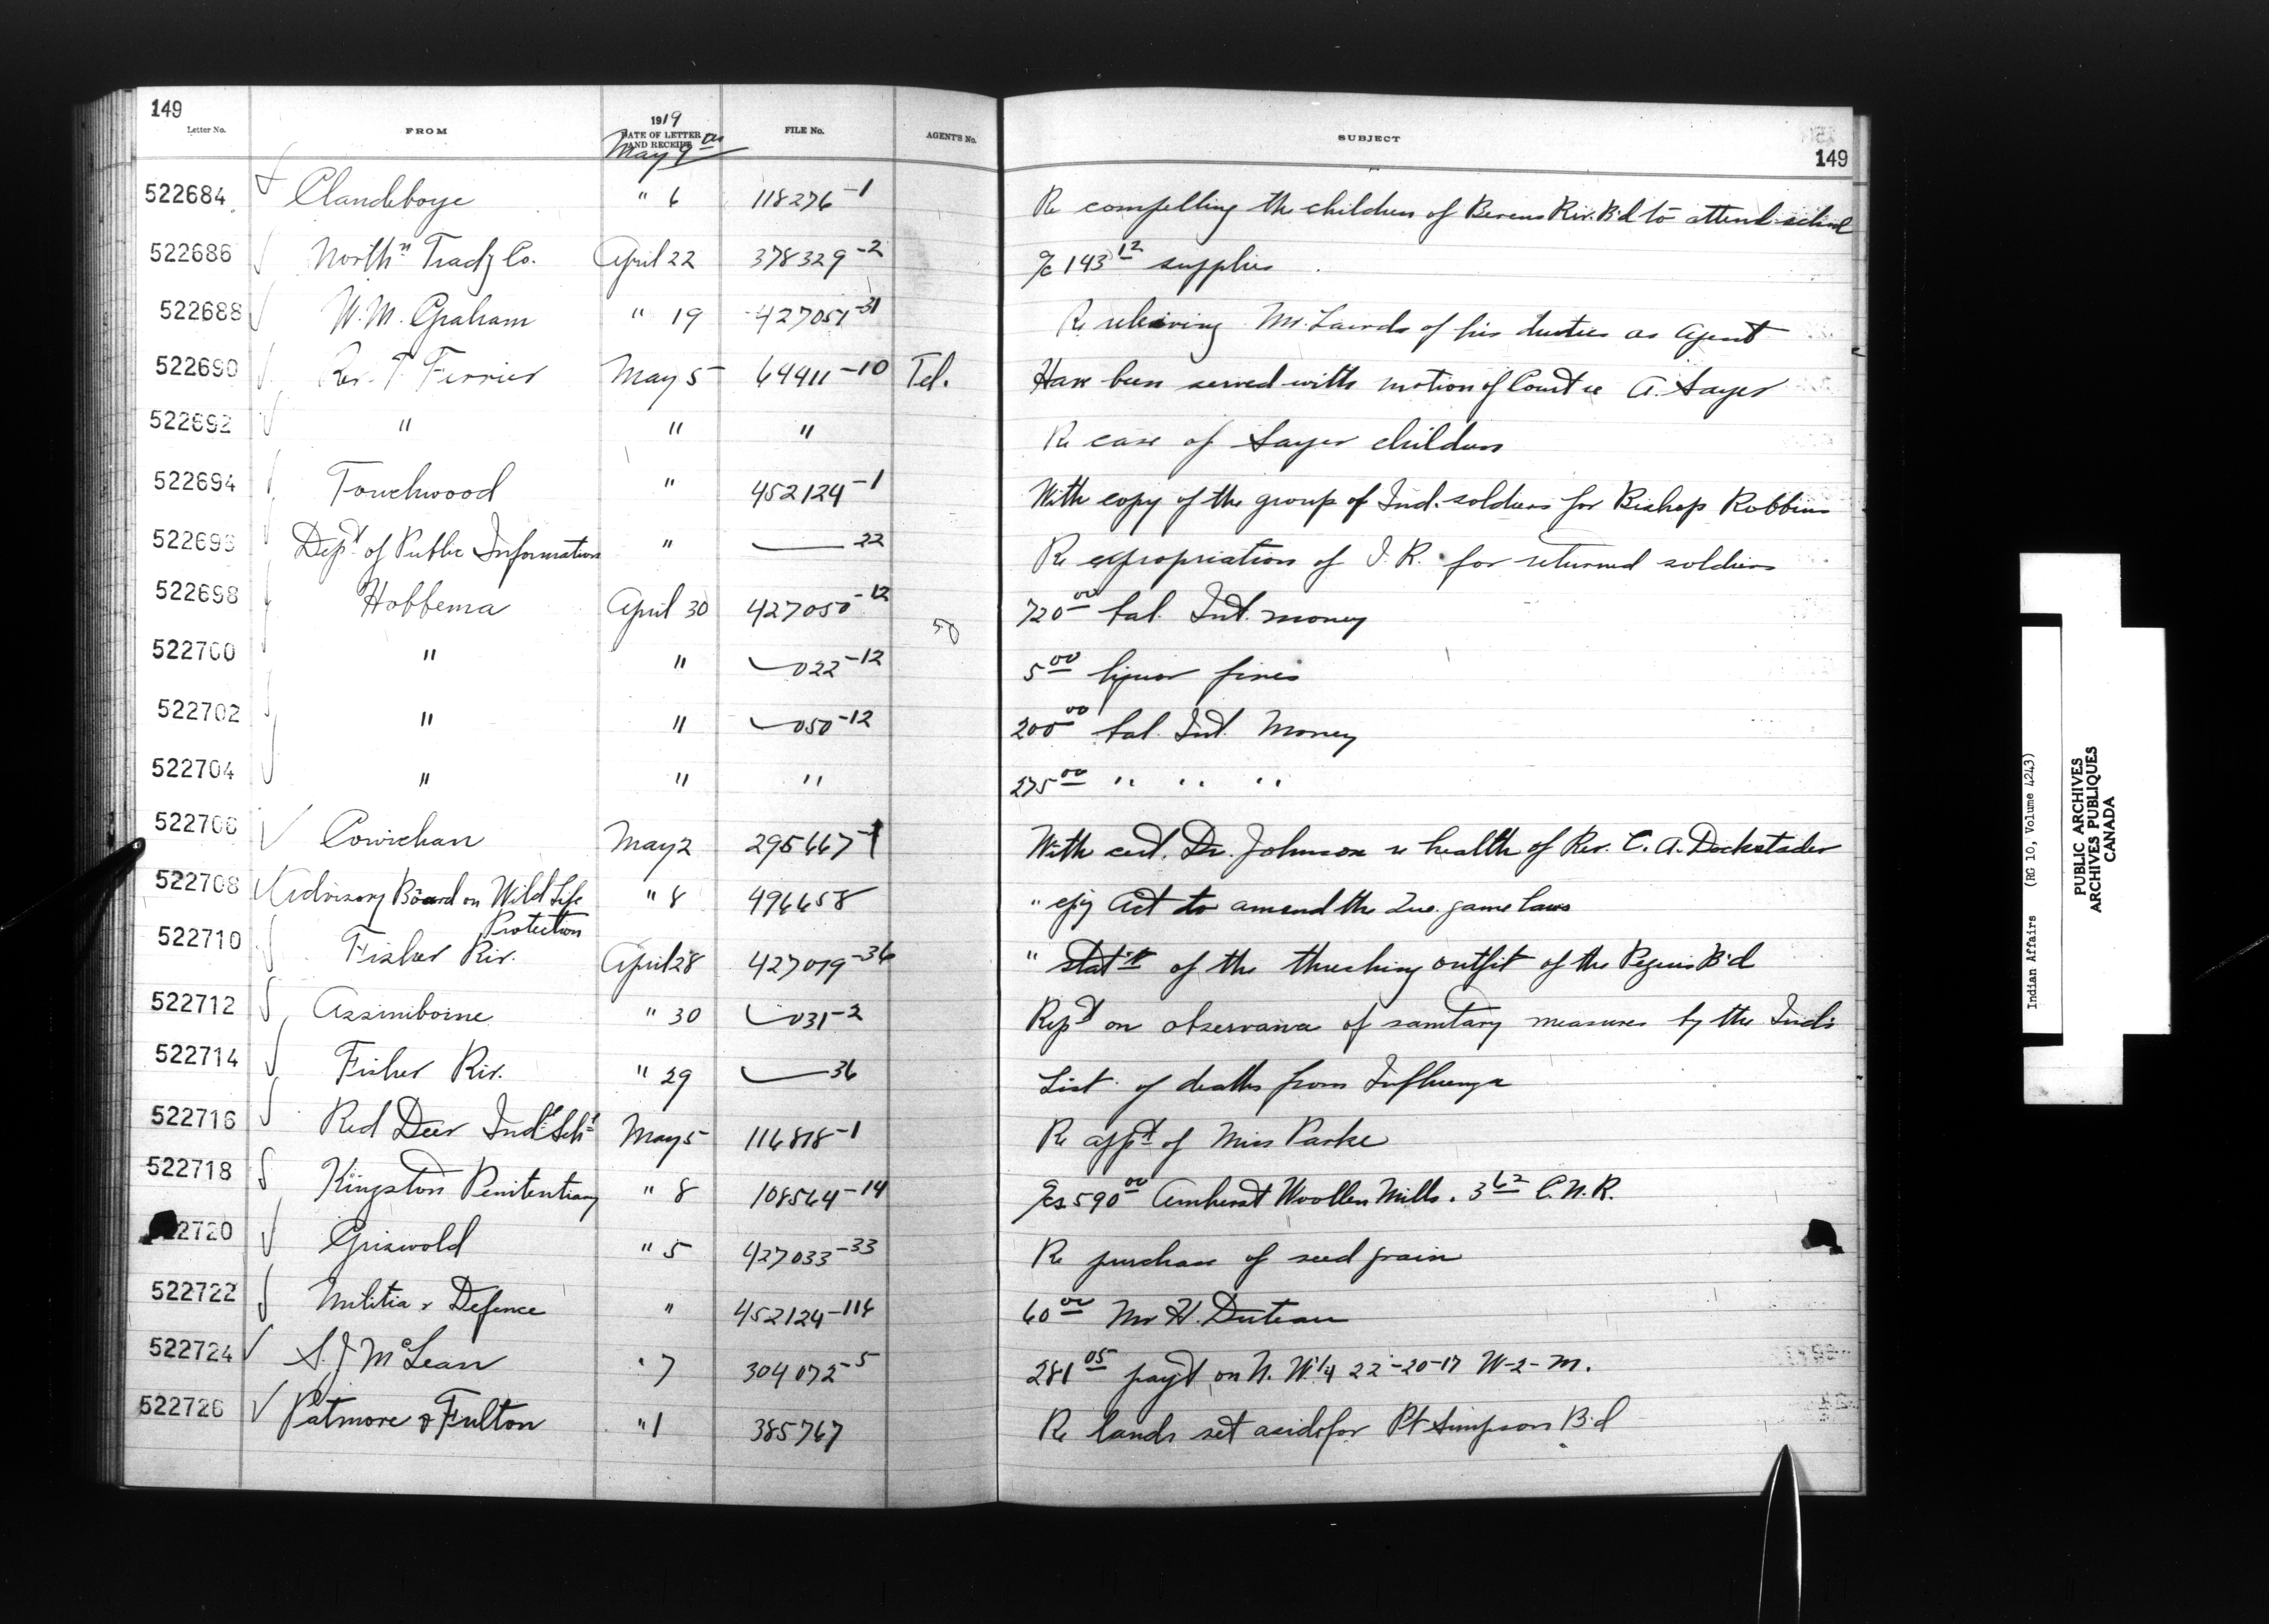 149
Letter No. FROM 1919 DATE OF LETTER AND RECEIPT FILE No. AGENT'S No. SUBJECT 149
May 9th
522684 Clandeboye " 6 118276-1 Re compelling the children of Berens Riv. B'd to attend school
522686 North'n Trad'g Co. April 22 378329-2 a/c 143.12 supplies
522688 W.M. Graham " 19 427051-31 Re relieving Mr. Lairds of his duties as Agent
522690 Rev. T. Ferrier May 5 64411-10 Tel. Have been served with motion of Court re A. Sayer
522692 " " " Re case of Sayer children
522694 Touchwood " 452124-1 With copy of the group of Ind. soldiers for Bishop Robbins
522696 Dept of Public Information " —22 Re expropriation of I.R. for returned soldiers
522698 Hobbema April 30 427050-12 720.00 bal. Int. money
50
522700 " " —022-12 5.00 liquor fines
522702 " " —050-12 200.00 bal. Int. Money
522704 " " " 275.00 " " "
522706 Cowichan May 2 295667-1 With cert. Dr. Johnson re health of Rev. C. A. Dockstader
522708 Advisory Board on Wild Life Protection " 8 496658 " cpy Act to amend the Que. game laws
522710 Fisher Riv. April 28 427019-36 " stat't of the threshing outfit of the Peguis B'd
522712 Assiniboine " 30 —031-2 Rept on observance of sanitary measures by the Ind's
522714 Fisher Riv. " 29 —36 List of deaths from Influenza
522716 Red Deer Ind'l Sch'l May 5 116818-1 Re app't of Miss Parke
522718 Kingston Penitentiary " 8 108564-14 a/cs 590.00 Amherst Woollen Mills. 3.62 C.N.R.
2720 Griswold " 5 427033-33 Re purchase of seed grain
522722 Militia & Defence " 452124-116 60.00 Mr H.
522724 S. J McLean " 7 304072-5 281.05 pay't on N. W 1/4 22-20-17 W-2-M.
522726 Patmore & Fulton " 1 385767 Re lands set aside for Pt Simpson B'd
Indian Affairs (RG 10, Volume 4243)
PUBLIC ARCHIVES
ARCHIVES PUBLIQUES
CANADA